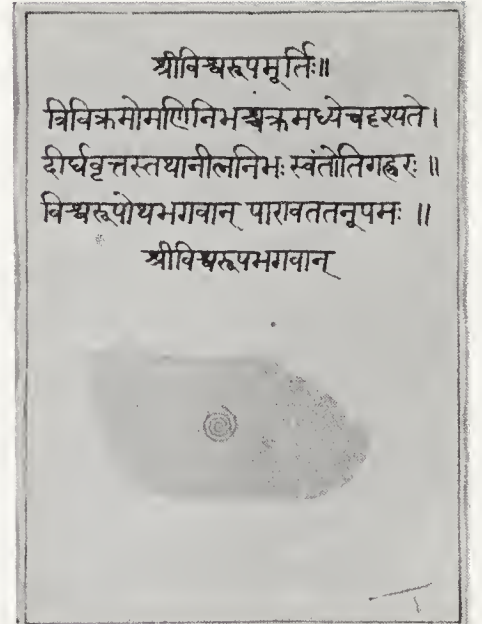 श्रीविश्वरूपमूर्तिः॥
त्रिविक्रमोमणिनिभश्चक्रमध्येचदृश्यते।
दीर्घवृत्तस्तथानीलनिभः स्वंतोतिगह्वरः॥
विश्वरूपोथभगवान् पारावततनूपमः ॥
श्रीविश्वरूपभगवान्